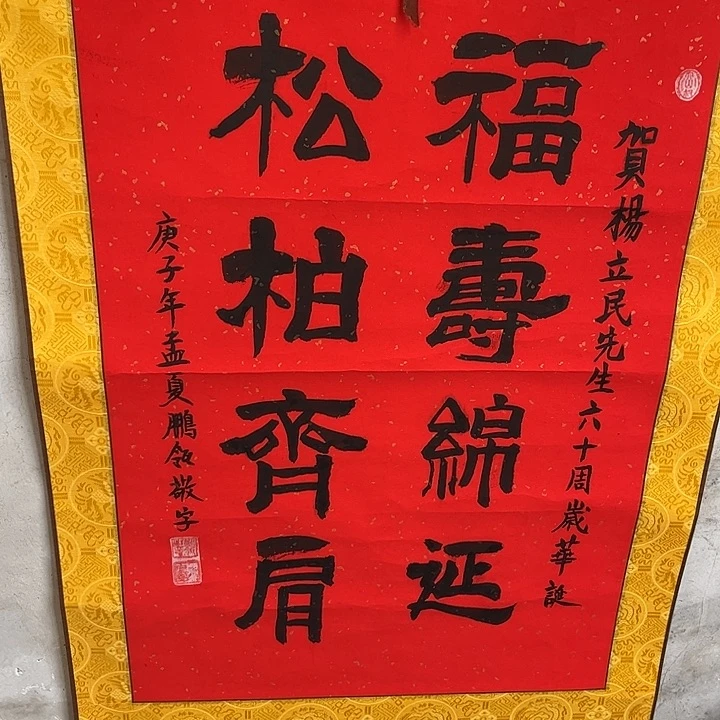 賀楊立民先生六十周歲華誕
福壽綿延
松柏齊肩
庚子年孟夏鵬飯敬字